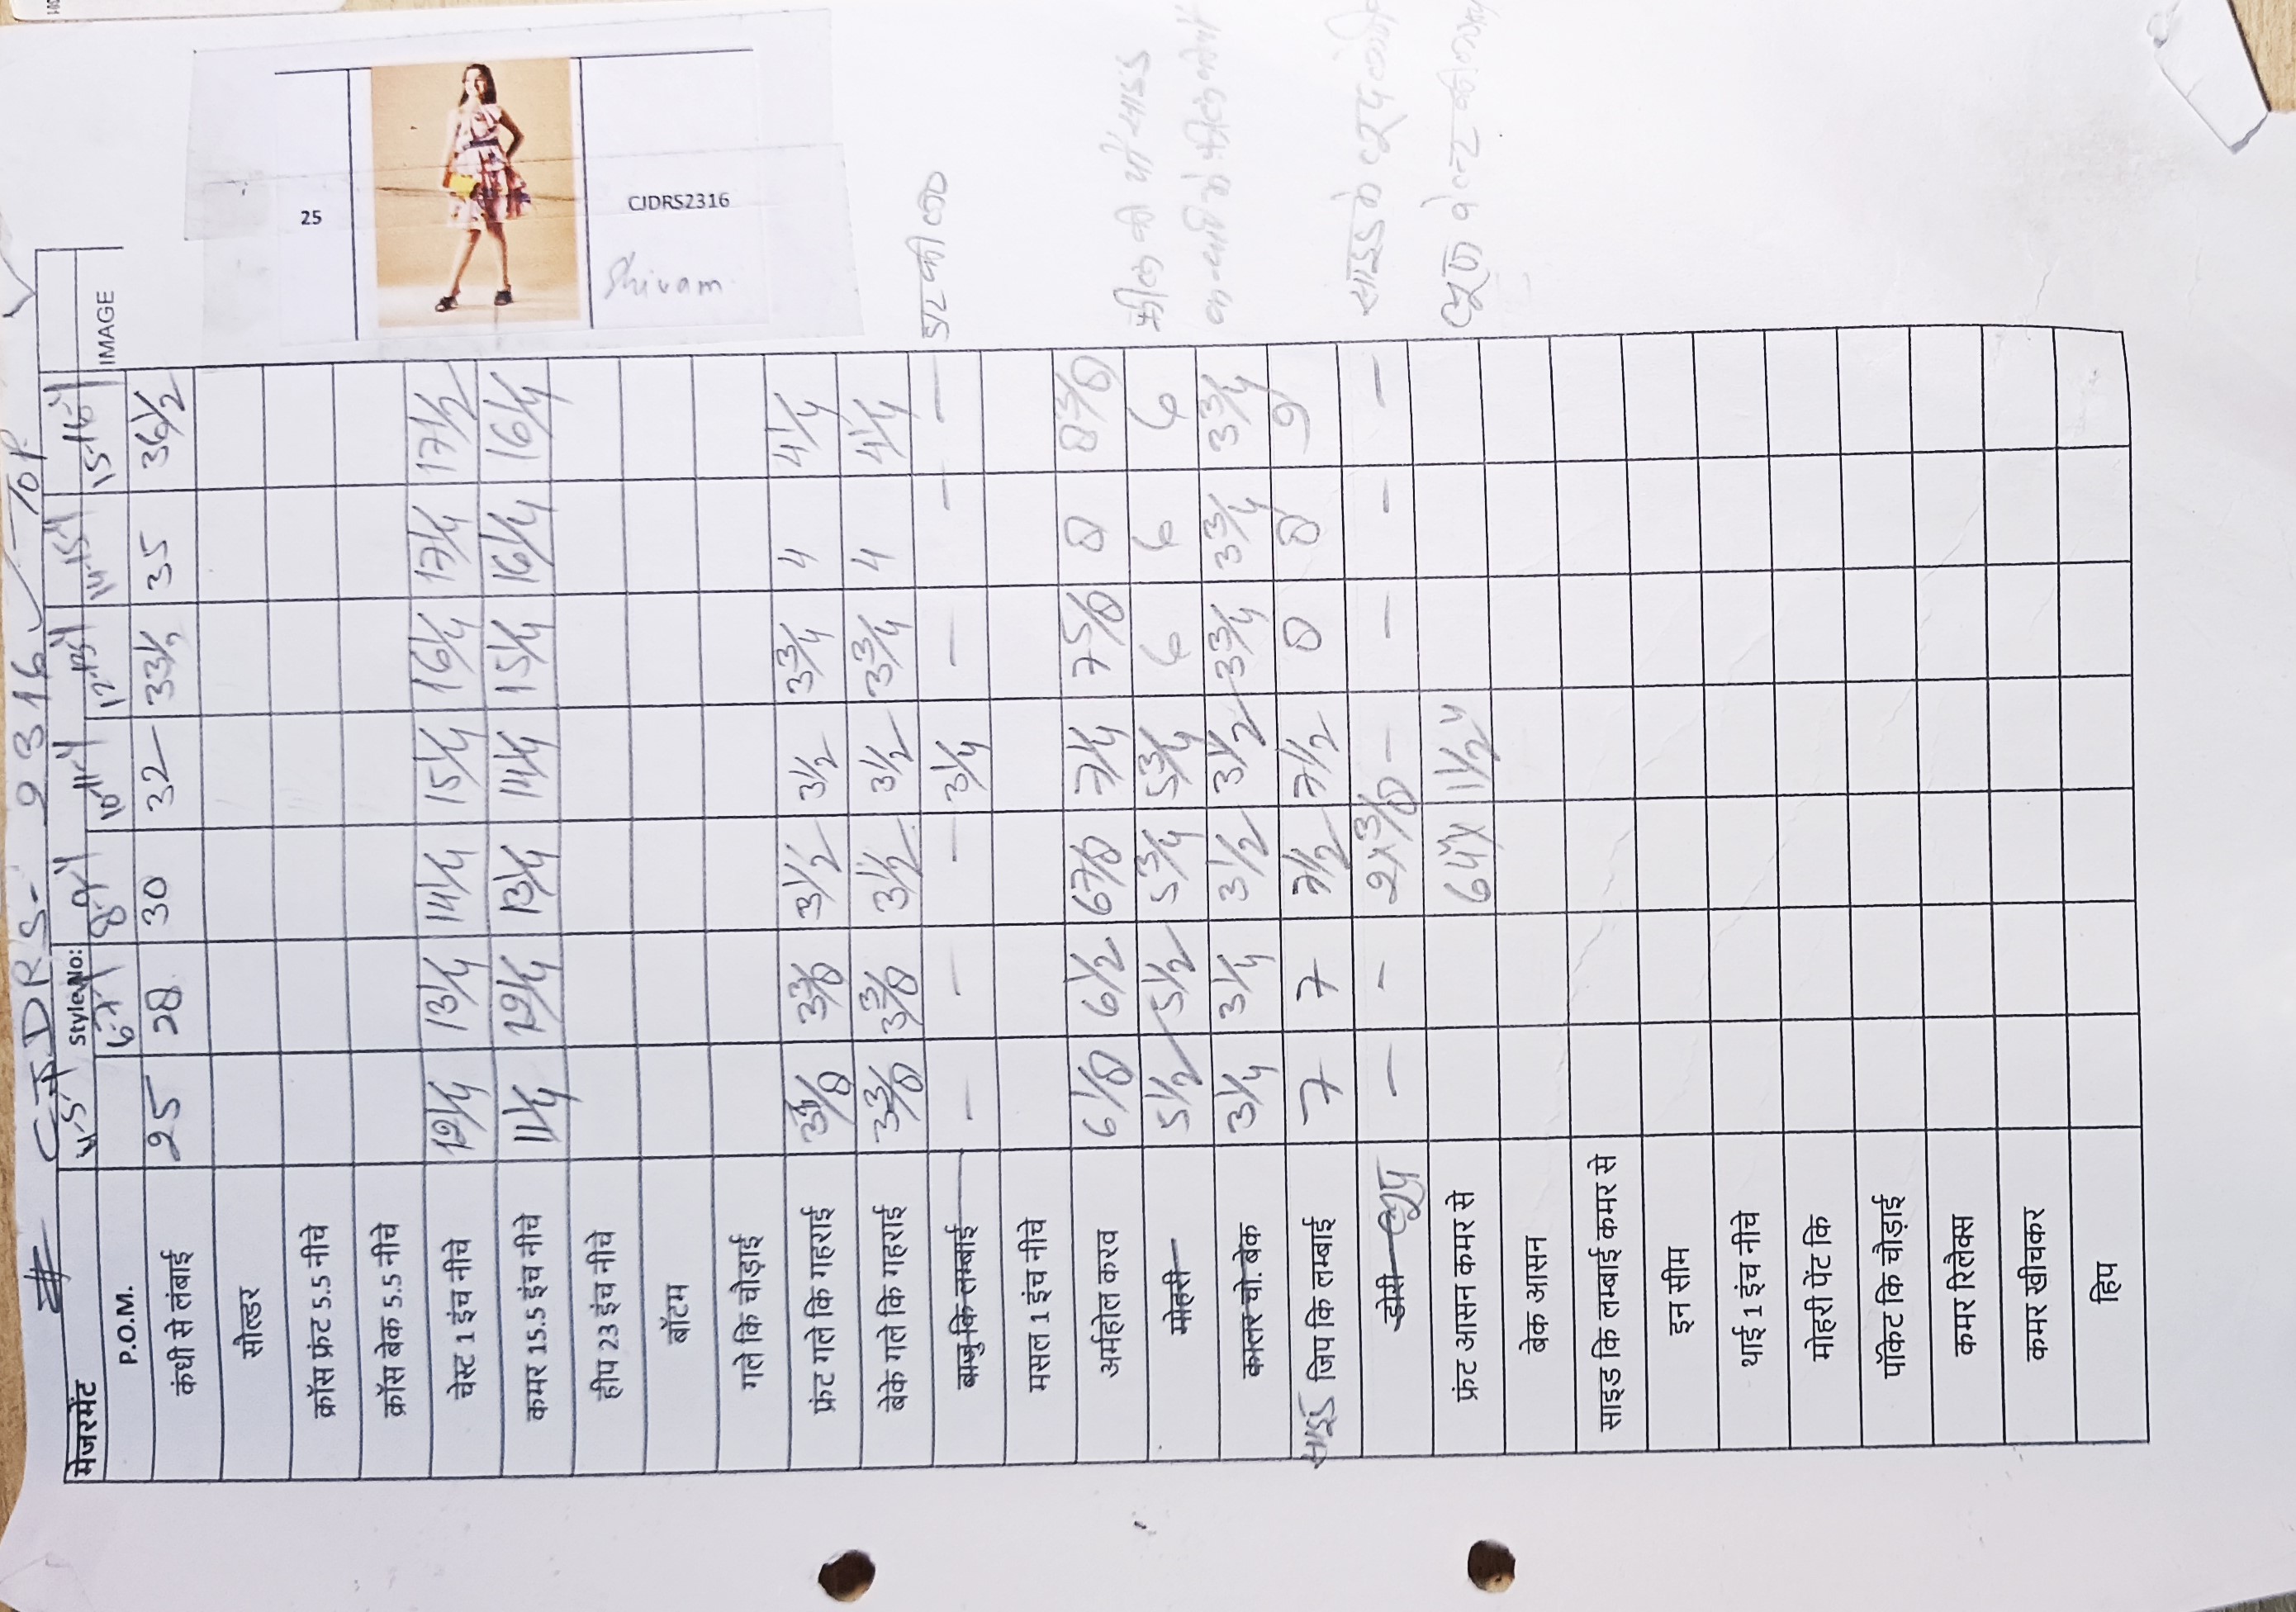 # CJDRS-2316 ✓ TOP
मेजरमेंट Style No:
P.O.M. 4-5Y 6-7Y 8-9Y 10-11Y 12-13Y 14-15Y 15-16Y IMAGE
कंधी से लंबाई 25 28 30 32 33½ 35 36½
सौल्डर
क्रॉस फ्रंट 5.5 नीचे
क्रॉस बेक 5.5 नीचे
चेस्ट 1 इंच नीचे 12¼ 13¼ 14¼ 15¼ 16¼ 17¼ 17½
कमर 15.5 इंच नीचे 11¼ 12¼ 13¼ 14¼ 15¼ 16¼ 16¼
हीप 23 इंच नीचे
बॉटम
गले कि चौड़ाई
फ्रंट गले कि गहराई 3⅜ 3⅜ 3½ 3½ 3¾ 4 4¼
बेके गले कि गहराई 3⅜ 3⅜ 3½ 3½ 3¾ 4 4¼
बाजु कि लम्बाई - - - 3¼ - - -
मसल 1 इंच नीचे
अर्महोल करव 6⅛ 6½ 6⅞ 7¼ 7⅝ 8 8⅜
मोहरी 5½ 5½ 5¾ 5¾ 6 6 6
कालर चो. बेक 3¼ 3¼ 3½ 3½ 3¾ 3¾ 3¾
साइड जिप कि लम्बाई 7 7 7½ 7½ 8 8 9
डोरी लूप - - 2x⅜ - - - -
फ्रंट आसन कमर से 64" x 1½"
बेक आसन
साइड कि लम्बाई कमर से
इन सीम
थाई 1 इंच नीचे
मोहरी पेंट कि
पॉकेट कि चौड़ाई
कमर रिलैक्स
कमर खीचकर
हिप
25
CJDRS2316
Shivam
साइड के लूप